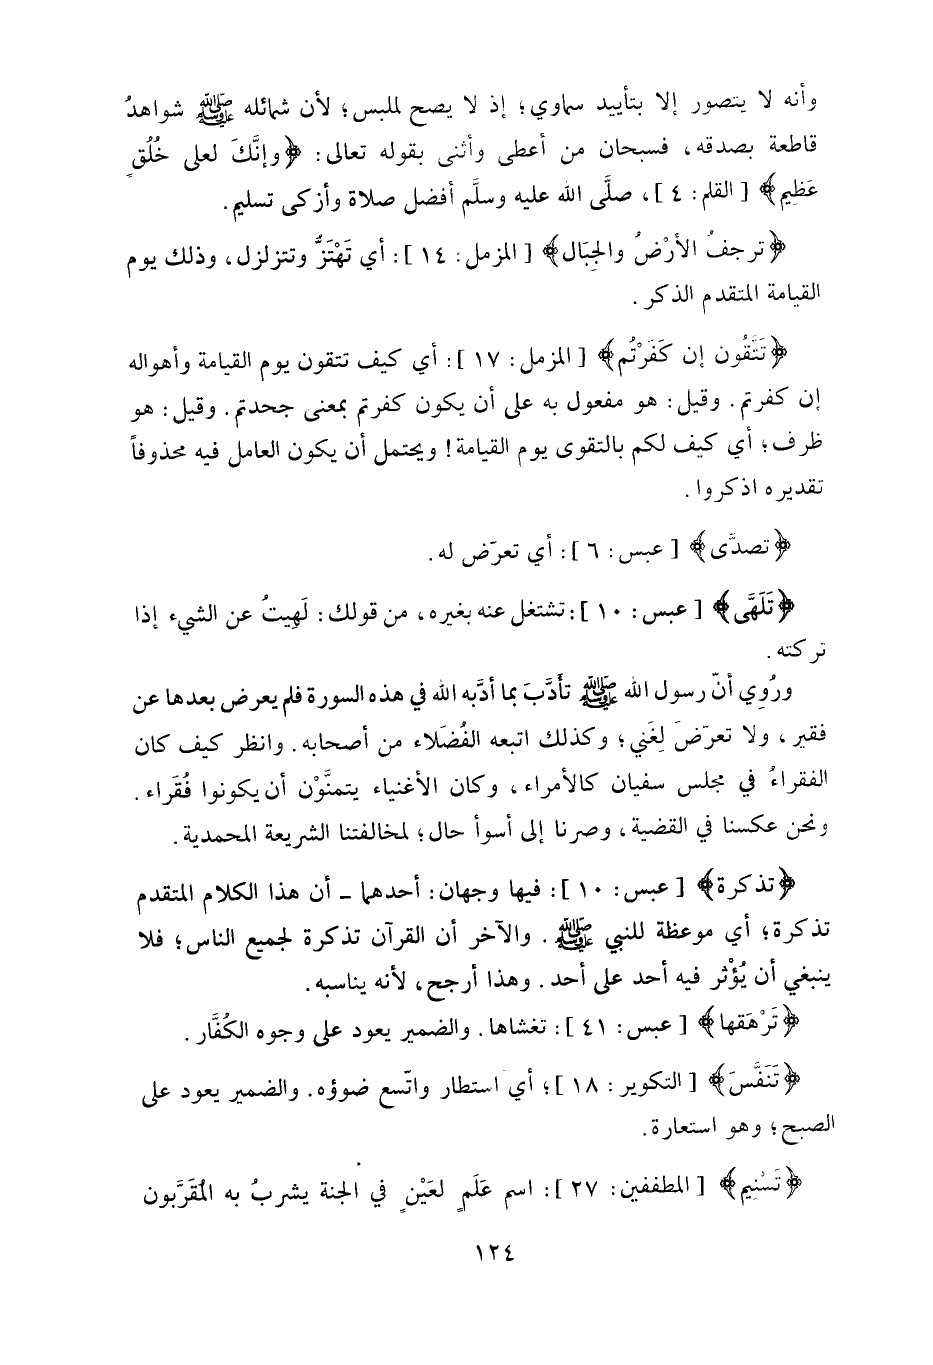 وأنه لا يتصور إلا بتأييد سماوي؛ إذ لا يصح لملبس؛ لأن شمائله ﷺ شواهدُ
قاطعة بصدقه، فسبحان من أعطى وأثنى بقوله تعالى: ﴿وإنَّكَ لعلى خُلُقٍ
عَظِيم﴾ [ القلم: ٤ ]، صلَّى الله عليه وسلَّم أفضل صلاة وأزكى تسليم.
﴿ترجفُ الأرْضُ والجِبَال﴾ [ المزمل: ١٤ ]: أي تَهْتَزُّ وتتزلزل، وذلك يوم
القيامة المتقدم الذكر.
﴿تَتَّقُون إن كَفَرْتُم﴾ [ المزمل: ١٧ ]: أي كيف تتقون يوم القيامة وأهواله
إن كفرتم. وقيل: هو مفعول به على أن يكون كفرتم بمعنى جحدتم. وقيل: هو
ظرف؛ أي كيف لكم بالتقوى يوم القيامة! ويحتمل أن يكون العامل فيه محذوفاً
تقديره اذكروا.
﴿تصدَّى﴾ [ عبس: ٦ ]: أي تعرّض له.
﴿تَلَهَّى﴾ [ عبس: ١٠ ]: تشتغل عنه بغيره، من قولك: لَهِيتُ عن الشيء إذا
تركته.
ورُوِي أنّ رسول الله ﷺ تأَدَّبَ بما أدَّبه الله في هذه السورة فلم يعرض بعدها عن
فقير، ولا تعرّضَ لِغَني؛ وكذلك اتبعه الفُضَلاء من أصحابه. وانظر كيف كان
الفقراءُ في مجلس سفيان كالأمراء، وكان الأغنياء يتمنَّوْن أن يكونوا فُقَراء.
ونحن عكسنا في القضية، وصرنا إلى أسوأ حال؛ لمخالفتنا الشريعة المحمدية.
﴿تذكرة﴾ [ عبس: ١٠ ]: فيها وجهان: أحدهما ـ أن هذا الكلام المتقدم
تذكرة؛ أي موعظة للنبي ﷺ. والآخر أن القرآن تذكرة لجميع الناس؛ فلا
ينبغي أن يُؤْثر فيه أحد على أحد. وهذا أرجح، لأنه يناسبه.
﴿تَرْهَقها﴾ [ عبس: ٤١ ]: تغشاها. والضمير يعود على وجوه الكُفَّار.
﴿تَنَفَّسَ﴾ [ التكوير: ١٨ ]؛ أي استطار واتّسع ضوؤه. والضمير يعود على
الصبح؛ وهو استعارة.
﴿تَسْنِيم﴾ [ المطففين: ٢٧ ]: اسم عَلَمٍ لعَيْنٍ في الجنة يشربُ به المُقَرَّبون
١٢٤